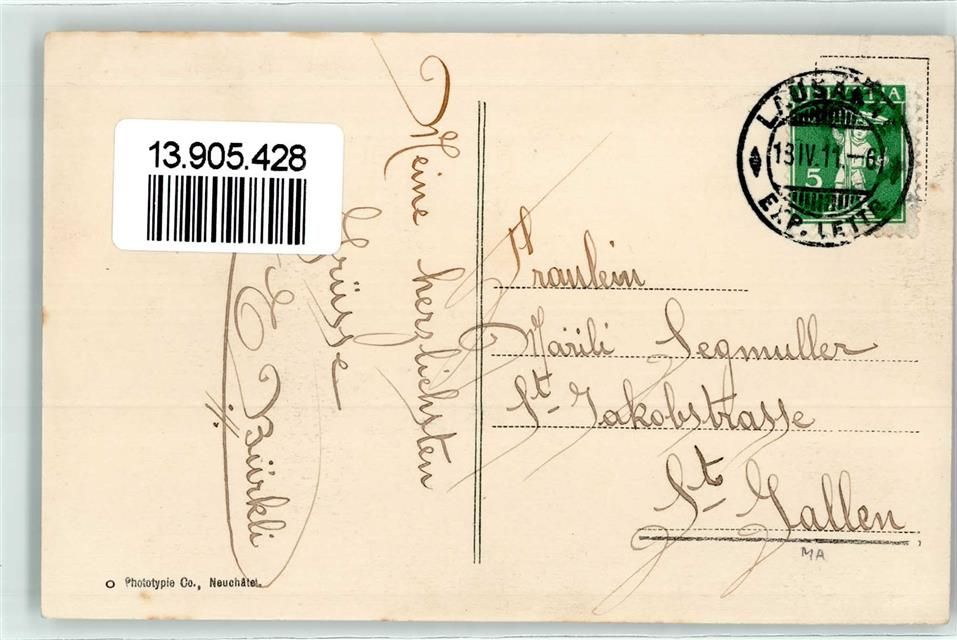 13.905.428
Meine herzlichsten
Grüsse
E. Bürkli
HELVETIA
5
LAUSANNE
13 IV. 11. - 6
EXP. LETTR.
Fräulein
Mäirili Segmuller
St. Jakobstrasse
St. Gallen
MA
Phototypie Co., Neuchâtel.